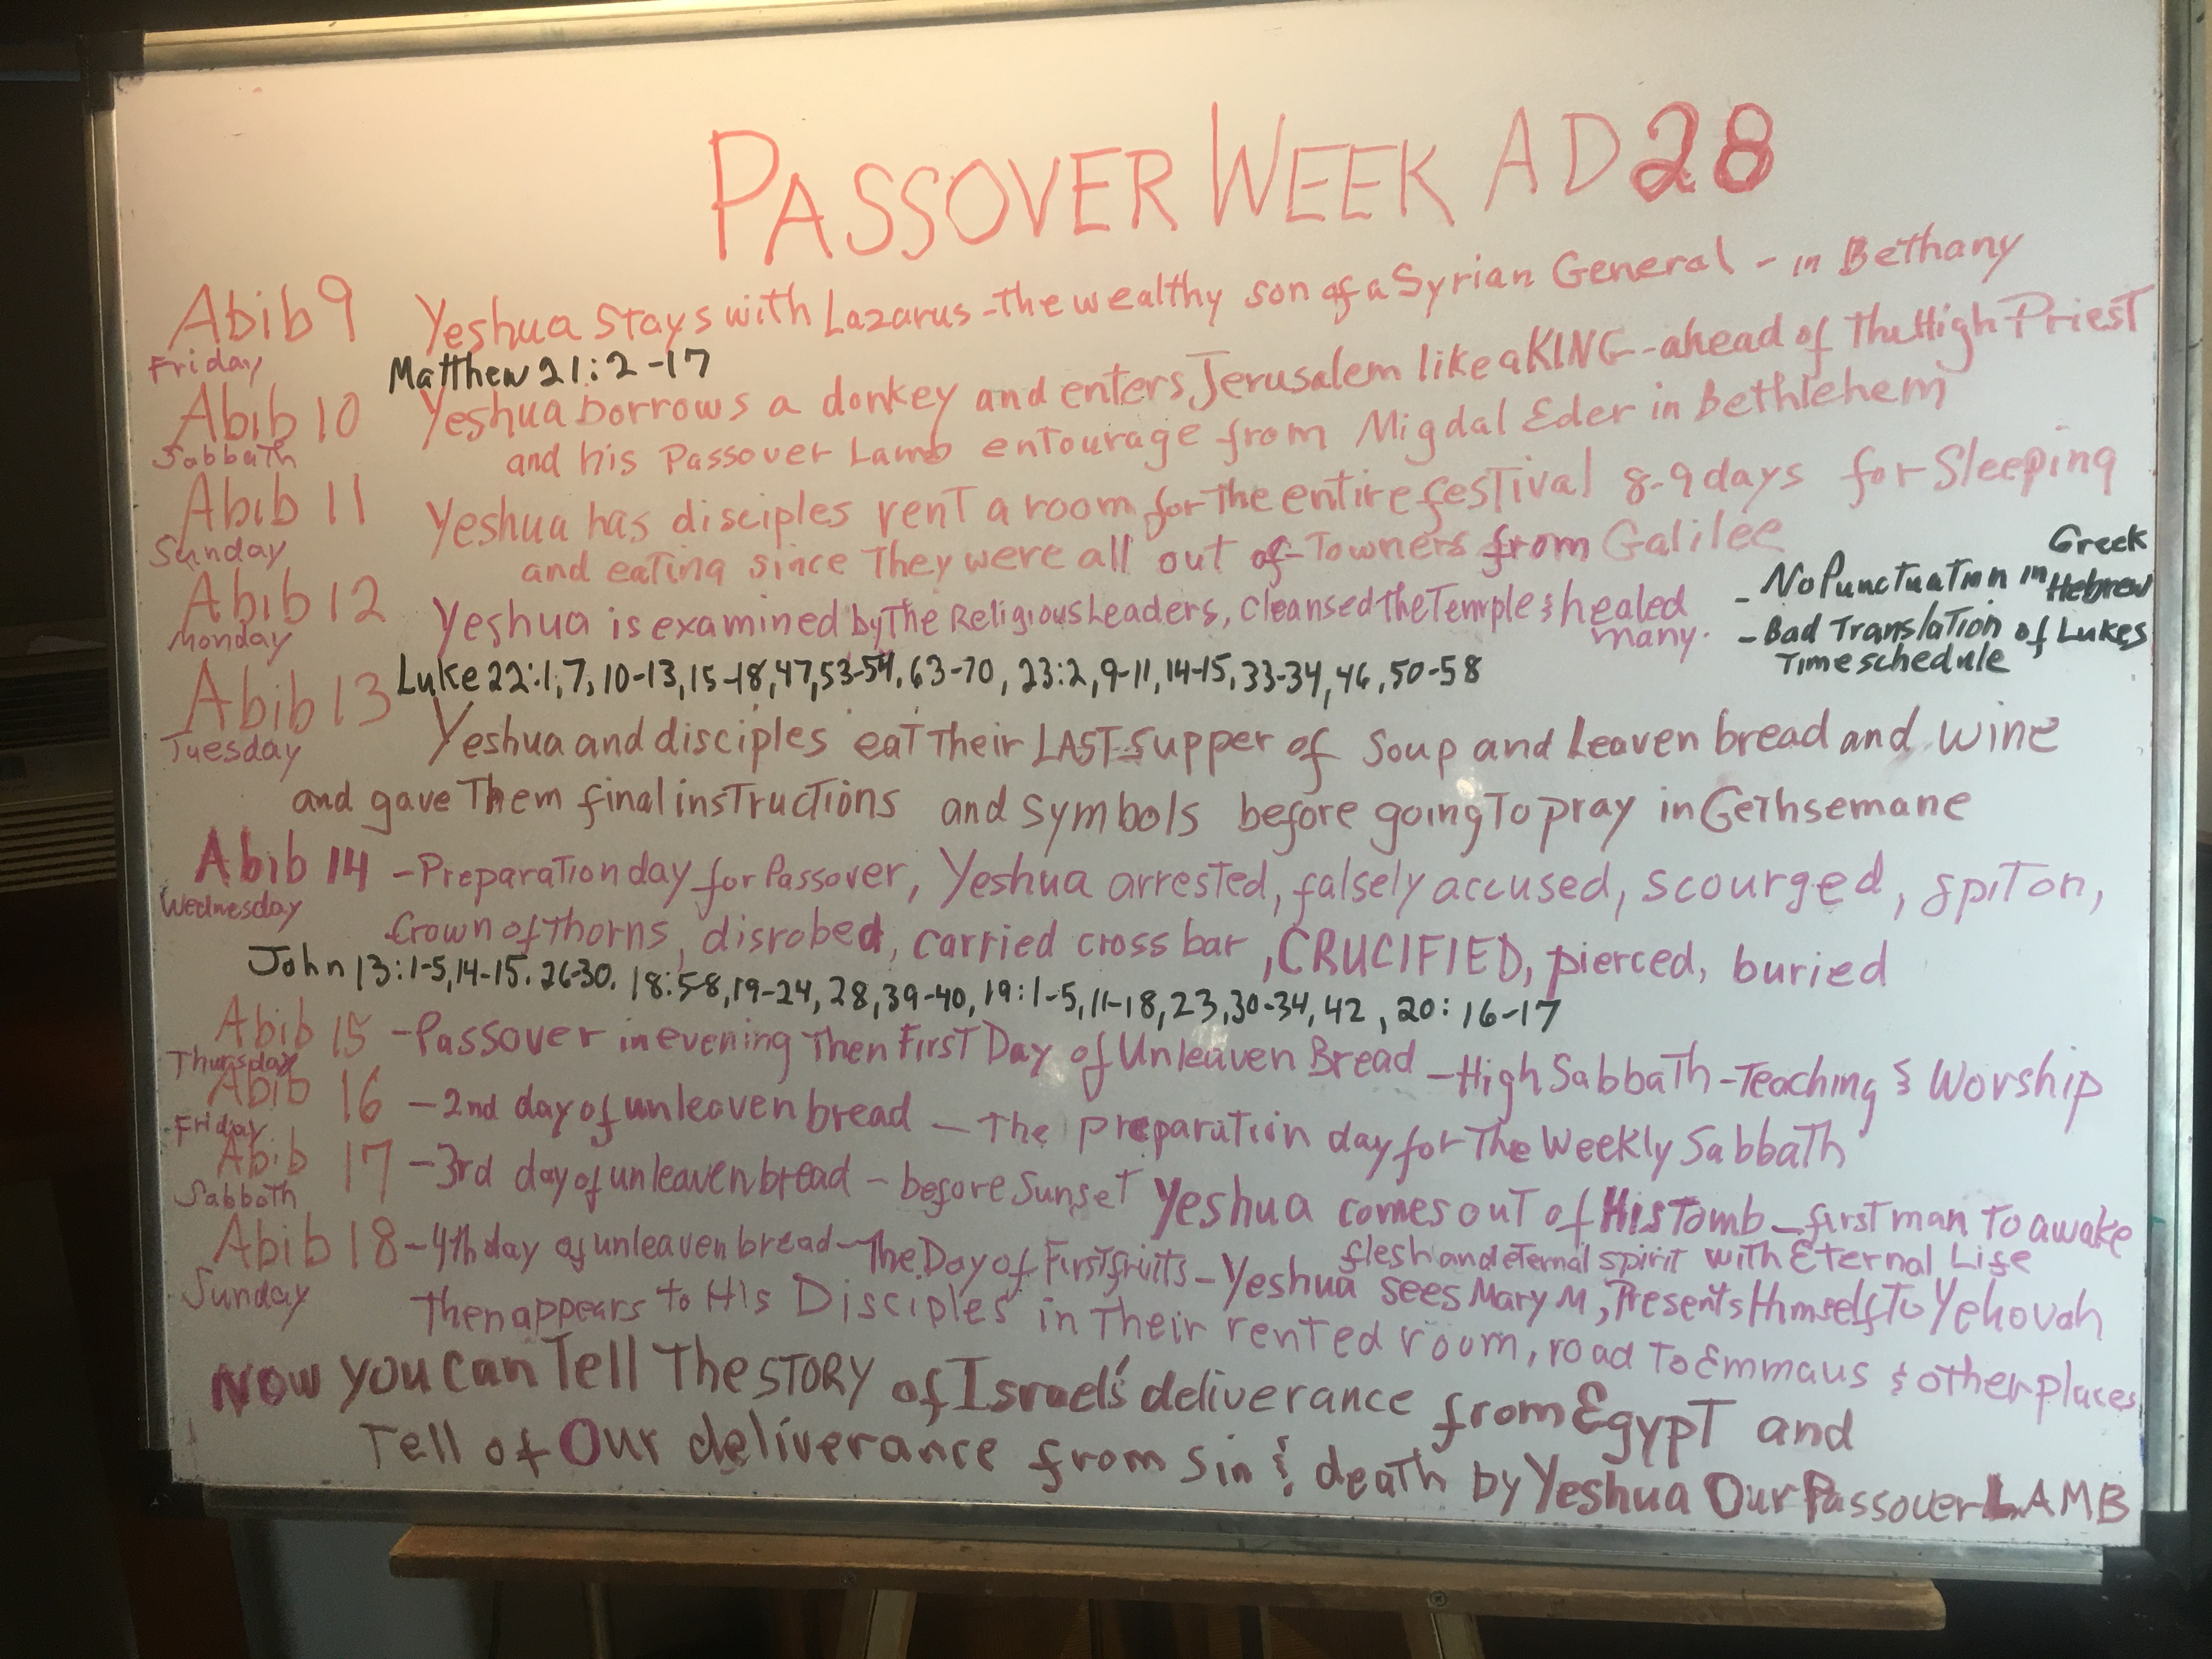 PASSOVER WEEK AD 28
Abib 9 Yeshua stays with Lazarus - the wealthy son of a Syrian General - in Bethany
Friday Matthew 21:2-17
Abib 10 Yeshua borrows a donkey and enters Jerusalem like a KING - ahead of The High Priest
Sabbath and his Passover Lamb entourage from Migdal Eder in Bethlehem
Abib 11 Yeshua has disciples rent a room for the entire festival 8-9 days for Sleeping
Sunday and eating since they were all out of-Towners from Galilee
Abib 12 Yeshua is examined by The Religious Leaders, cleansed the Temple & healed many.
Monday
- No Punctuation in Greek Hebrew
- Bad Translation of Lukes
Time schedule
Abib 13 Luke 22:1,7,10-13,15-18,47,53-54,63-70, 23:2,9-11,14-15,33-34,46,50-58
Tuesday Yeshua and disciples eat Their LAST Supper of Soup and Leaven bread and wine
and gave Them final instructions and symbols before going To pray in Gethsemane
Abib 14 - Preparation day for Passover, Yeshua arrested, falsely accused, scourged, spit on,
Wednesday Crown of thorns, disrobed, carried cross bar, CRUCIFIED, pierced, buried
John 13:1-5,14-15. 26-30. 18:5-8,19-24,28,39-40,19:1-5,11-18,23,30-34,42, 20:16-17
Abib 15 - Passover in evening Then First Day of Unleaven Bread - High Sabbath - Teaching & Worship
Thursday
Abib 16 - 2nd day of unleaven bread - The preparation day for The Weekly Sabbath
Friday
Abib 17 - 3rd day of unleaven bread - before Sunset Yeshua comes out of His Tomb - first man To awake
Sabbath flesh and eternal spirit with Eternal Life
Abib 18 - 4th day of unleaven bread - The Day of Firstfruits - Yeshua sees Mary M, Presents Himself To Yehovah
Sunday Then appears to His Disciples in Their rented room, road To Emmaus & other places
Now you can Tell The STORY of Israel's deliverance from Egypt and
Tell of Our deliverance from Sin & death by Yeshua Our Passover LAMB